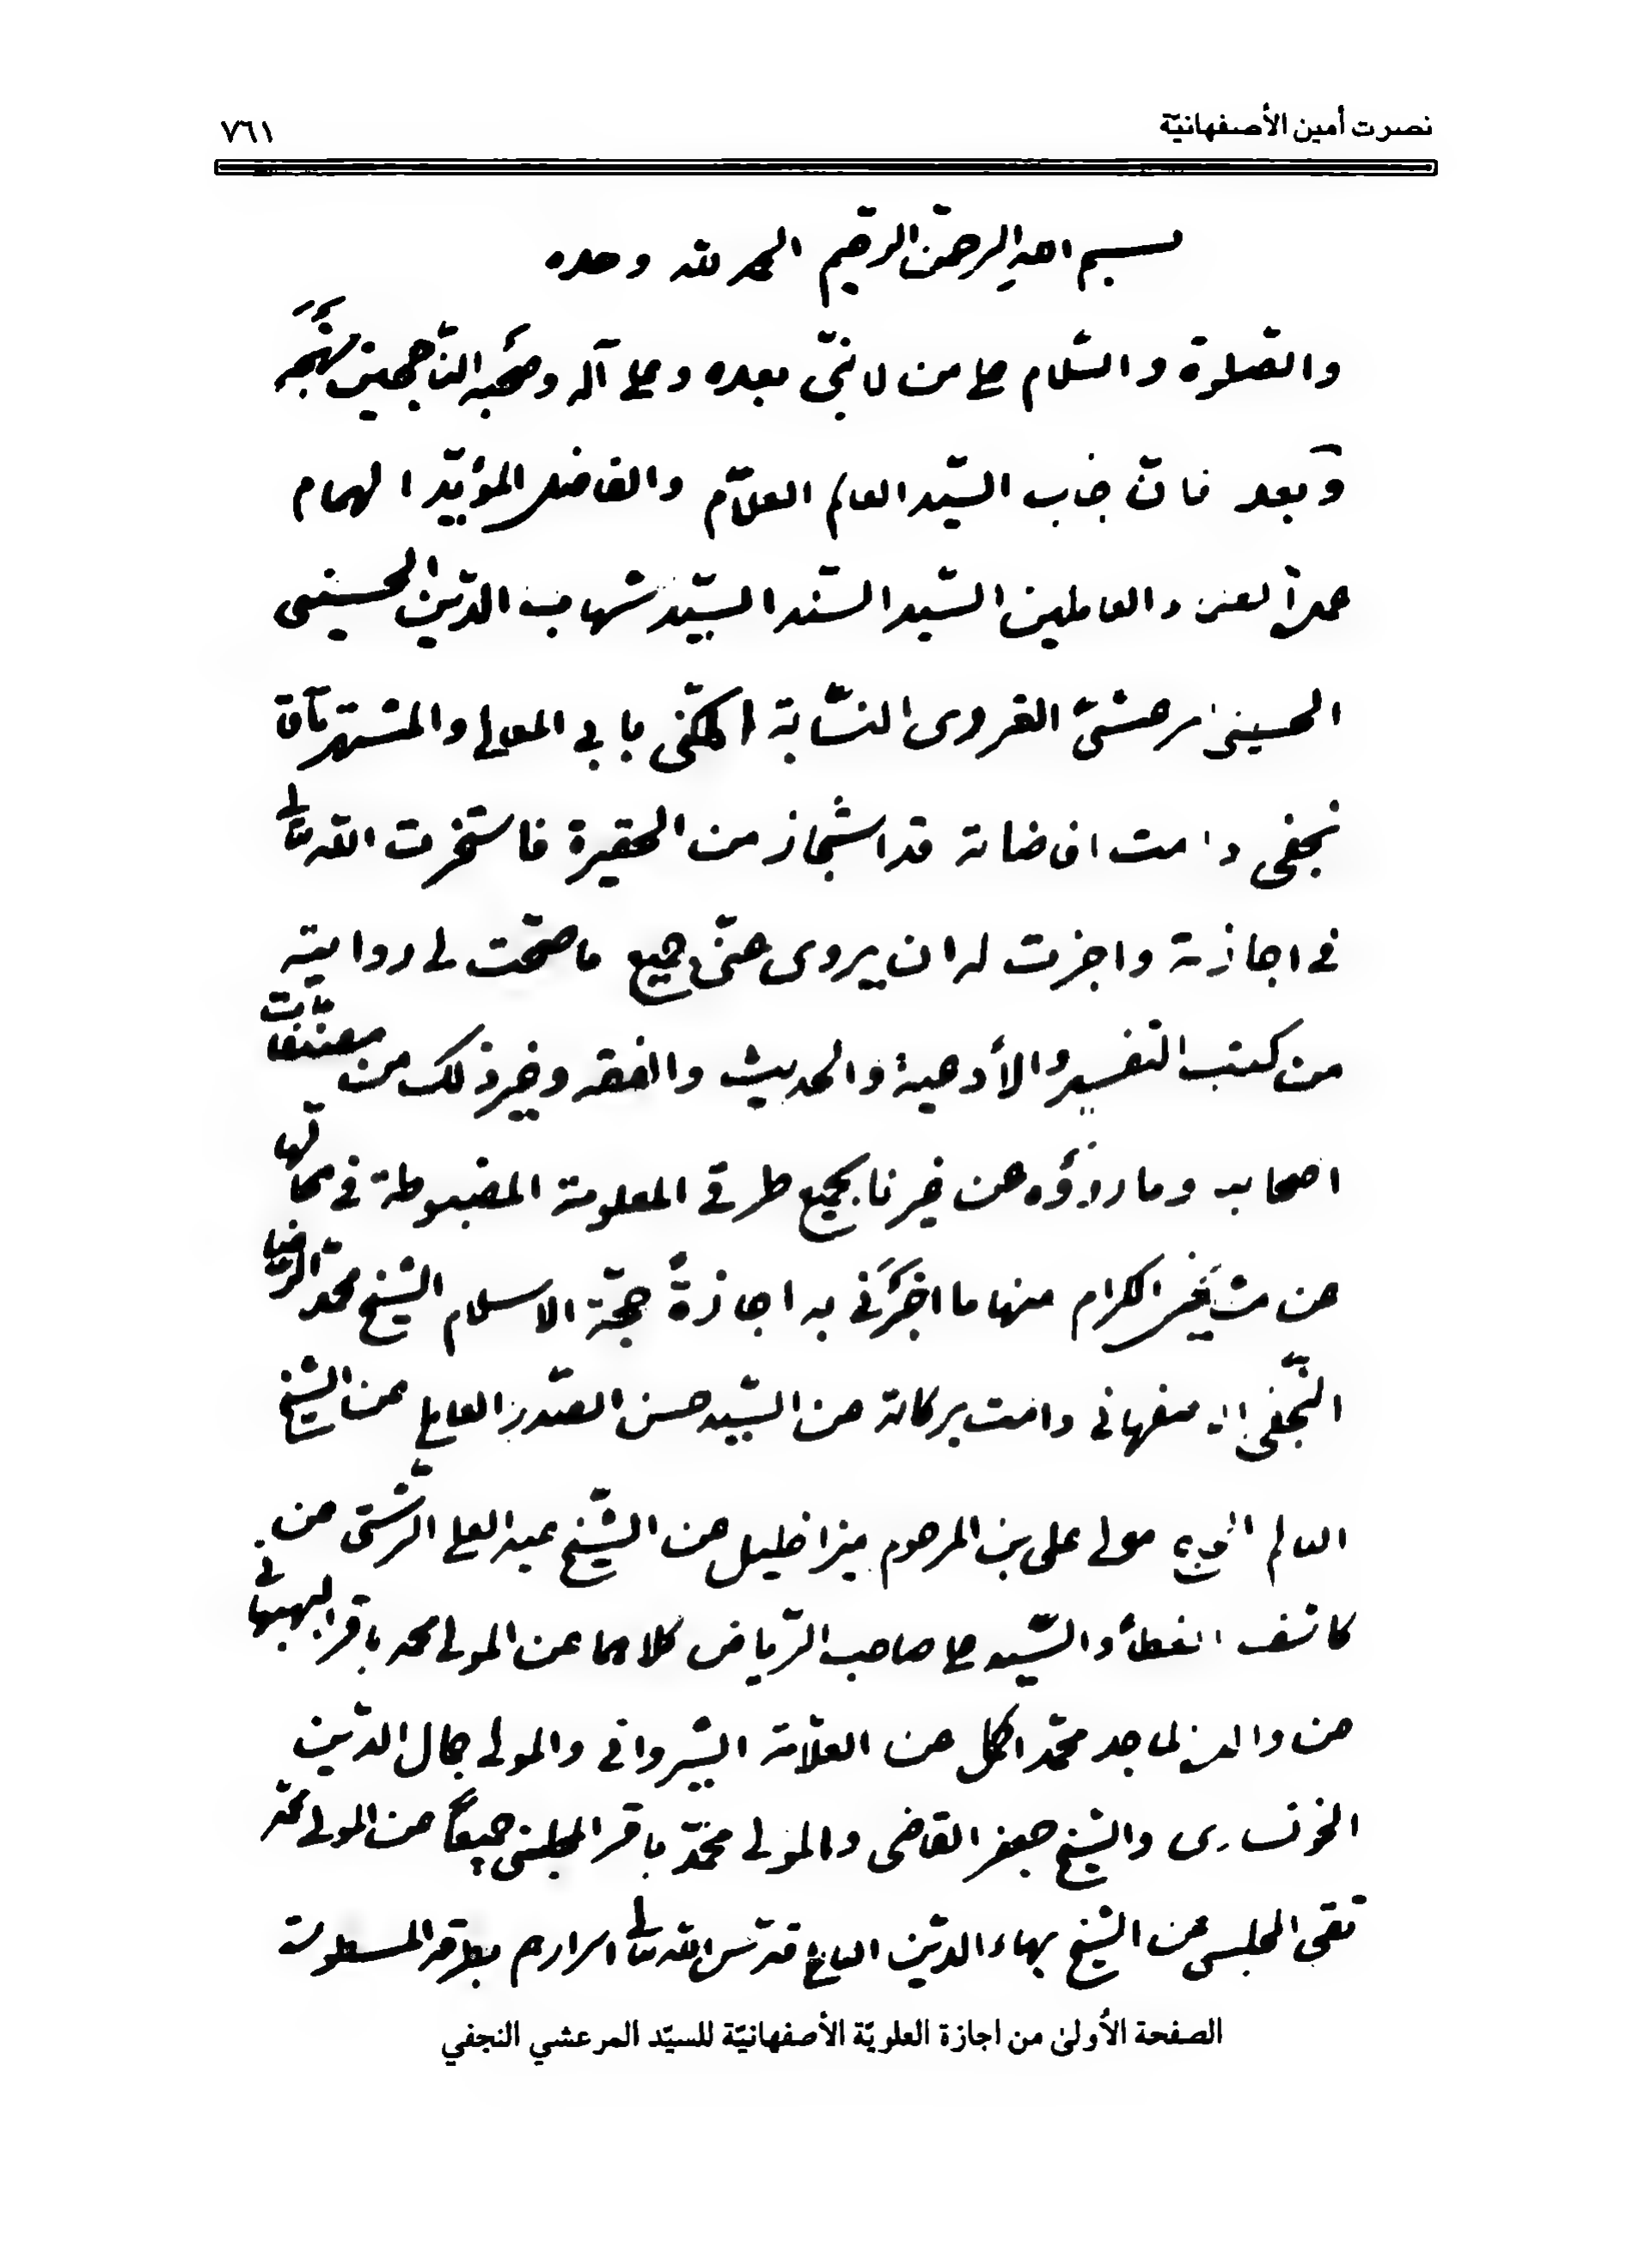 نصرت أمين الأصفهانيّة
٧٦١
بسم الله الرحمن الرحيم الحمد لله وحده
والصّلوة والسّلام على من لا نبيّ بعده وعلى آله وصحبه النّاهجين نهجه
وبعد فانّ جناب السّيد العالم العلاّم والفاضل المؤيّد الهمام
والعاملين السّيد السّند السيّد شهاب الدّين الحسيني
الحسيني مرعشيّ الغروى النسّابة المكنّى بابي المعالي والمشتهر بآقا
نجفى دامت افاضاته قد استجاز من الحقيرة فاستخرت الله تعالى
في اجازته واجزت له ان يروى عنّى جميع ما صحّت لي روايته
من كتب التفسير والأدعية والحديث والفقه وغير ذلك من مصنّفات
اصحابنا وما رووه عن غيرنا بجميع طرقي المعلومة المضبوطة في محالّها
عن مشايخي الكرام منها ما اخبرني به اجازةً حجّة الاسلام الشيخ محمّد الرضا
النّجفى الاصفهاني دامت بركاته عن السّيد حسن الصّدر العاملي عن الشيخ
العالم مولى على بن المرحوم ميرزا خليل عن الشّيخ عبد العلي الرشتىّ عن
كاشف الغطاء والسّيد على صاحب الرّياض كلاهما عن المولى محمد باقر البهبهاني
عن والده الماجد محمّد اكمل عن العلاّمة الشيرواني والمولى جمال الدّين
الخونسارى والشيخ جعفر القاضى والمولى محمّد باقر المجلسي جميعاً عن المولى محمّد
تقى المجلسى عن الشيخ بهاء الدّين العاملي قدّس الله تعالى اسرارهم بطرقه المسطورة
الصفحة الأولىٰ من اجازة العلويّة الأصفهانيّة للسيّد المرعشي النجفي